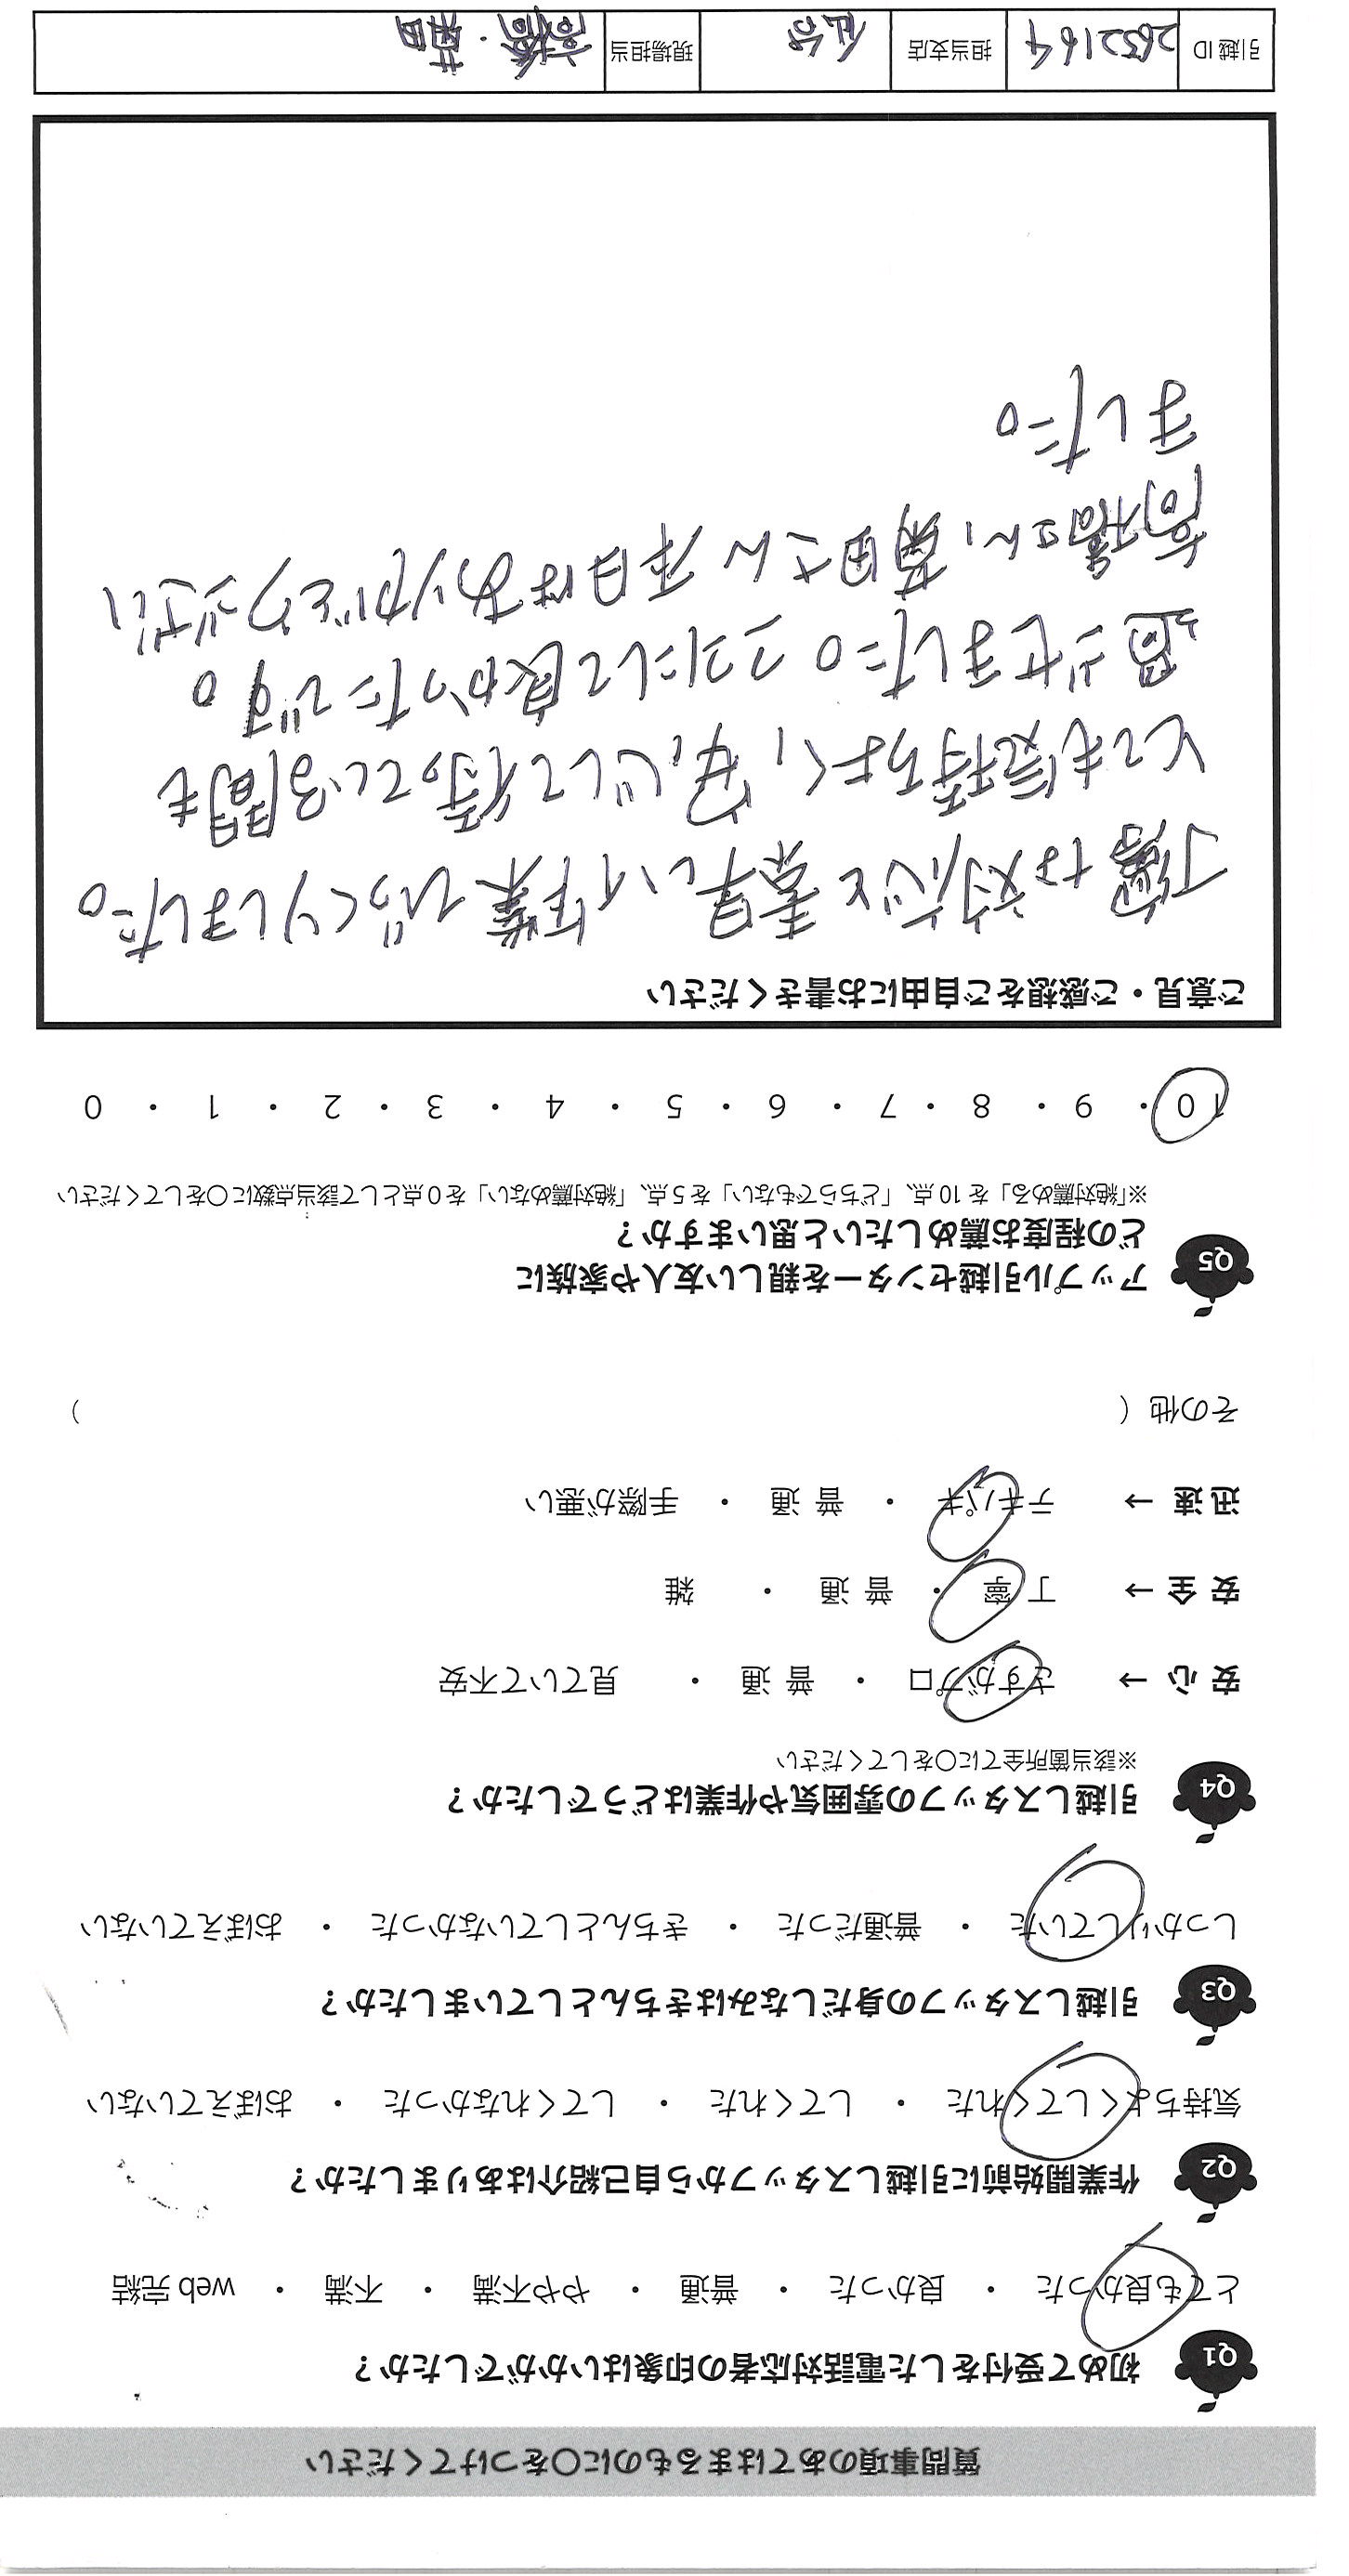 質問事項のあてはまるものに〇をつけてください
Q1 初めて受付をした電話対応者の印象はいかがでしたか？
とても良かった ・ 良かった ・ 普通 ・ やや不満 ・ 不満 ・ web 完結
Q2 作業開始前に引越しスタッフから自己紹介はありましたか？
気持ちよくしてくれた ・ してくれた ・ してくれなかった ・ おぼえていない
Q3 引越しスタッフの身だしなみはきちんとしていましたか？
しっかりしていた ・ 普通だった ・ きちんとしていなかった ・ おぼえていない
Q4 引越しスタッフの雰囲気や作業はどうでしたか？
※該当箇所全てに〇をしてください
安 心 → さすがプロ ・ 普 通 ・ 見ていて不安
安 全 → 丁 寧 ・ 普 通 ・ 雑
迅 速 → テキパキ ・ 普 通 ・ 手際が悪い
その他（ ）
Q5 アップル引越センターを親しい友人や家族に
どの程度お薦めしたいと思いますか？
※「絶対薦める」を 10 点、「どちらでもない」を 5 点、「絶対薦めない」を 0 点として該当点数に〇をしてください
10 ・ 9 ・ 8 ・ 7 ・ 6 ・ 5 ・ 4 ・ 3 ・ 2 ・ 1 ・ 0
ご意見・ご感想をご自由にお書きください
丁寧な対応と素早い作業びっくりしました。
とても気持ちよく、安心して待っている間も
過ごせました。ココにして良かったです。
高橋さん、菊田さん 本日はありがとうござい
ました。
引越 ID 2652164 担当支店 仙台 現場担当 高橋・菊田